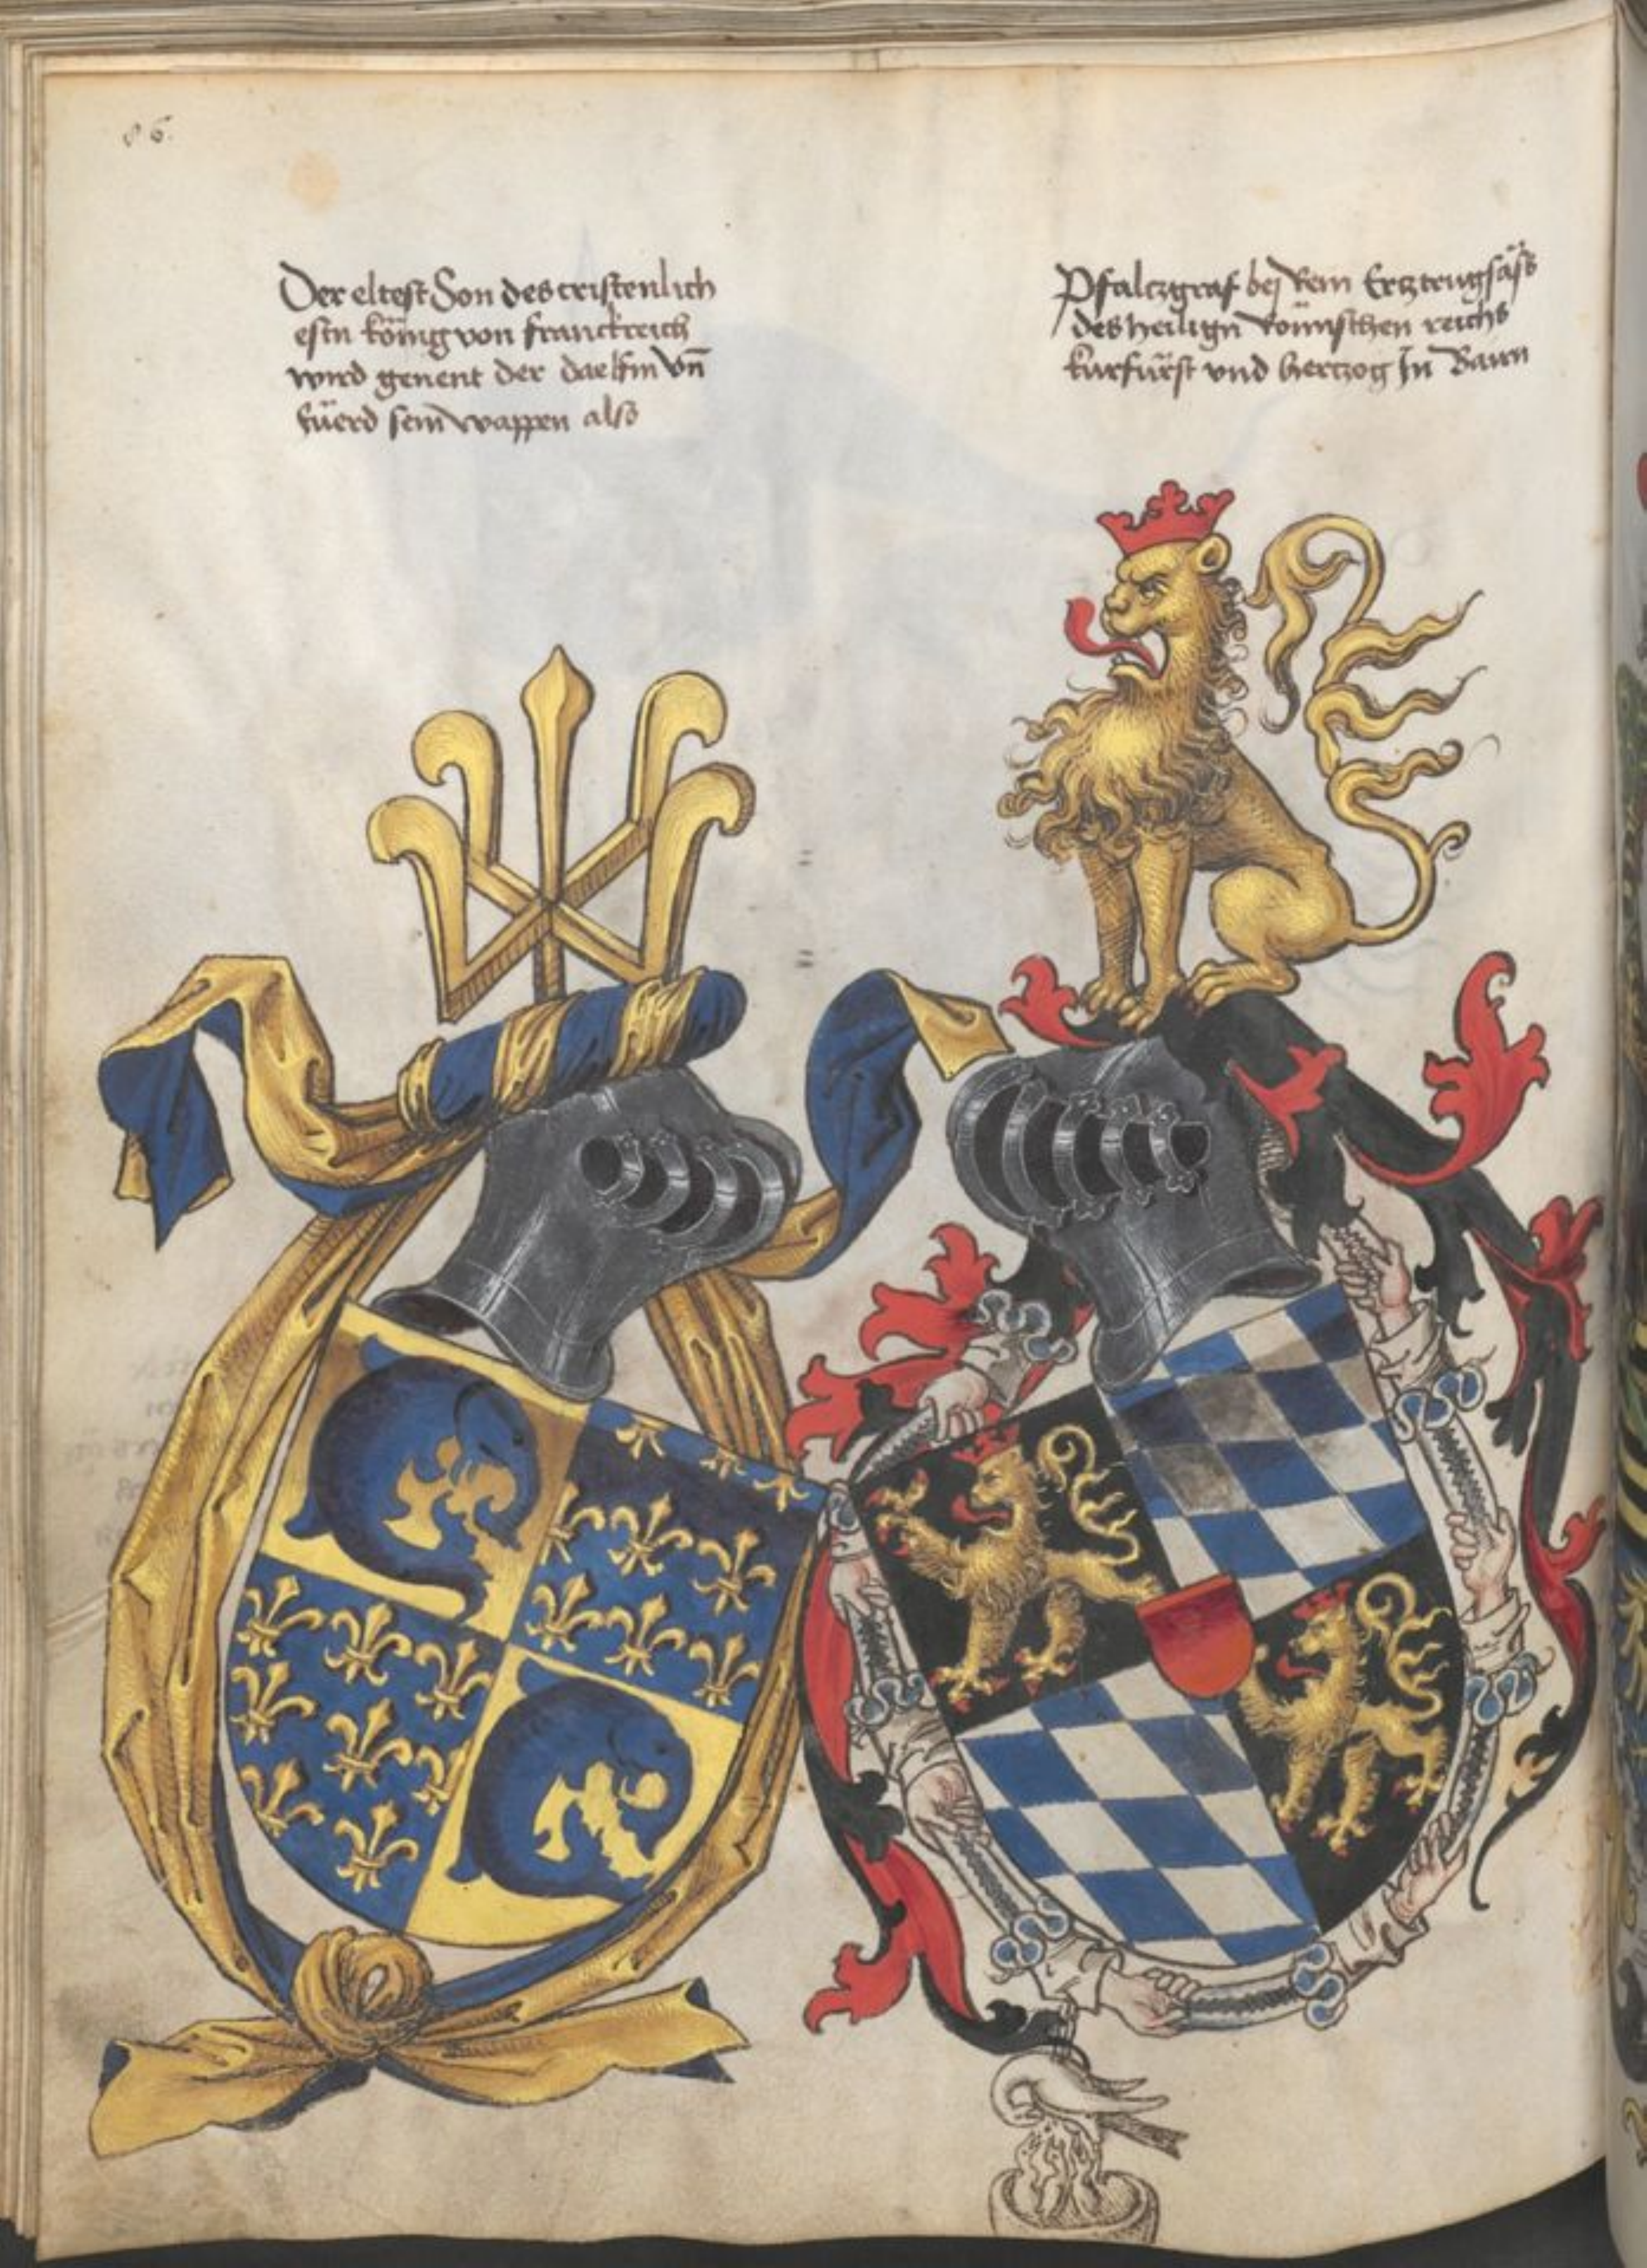 86.
Der eltest Son des cristenlich
estn köing von franckreich
wird genent der dalfin vn̄
füerd sein wappen also
Pfalczgraf bej Rein Ercztrugsäß
des heiligñ römischen reichs
kurfürst vnd herczog In Bairn